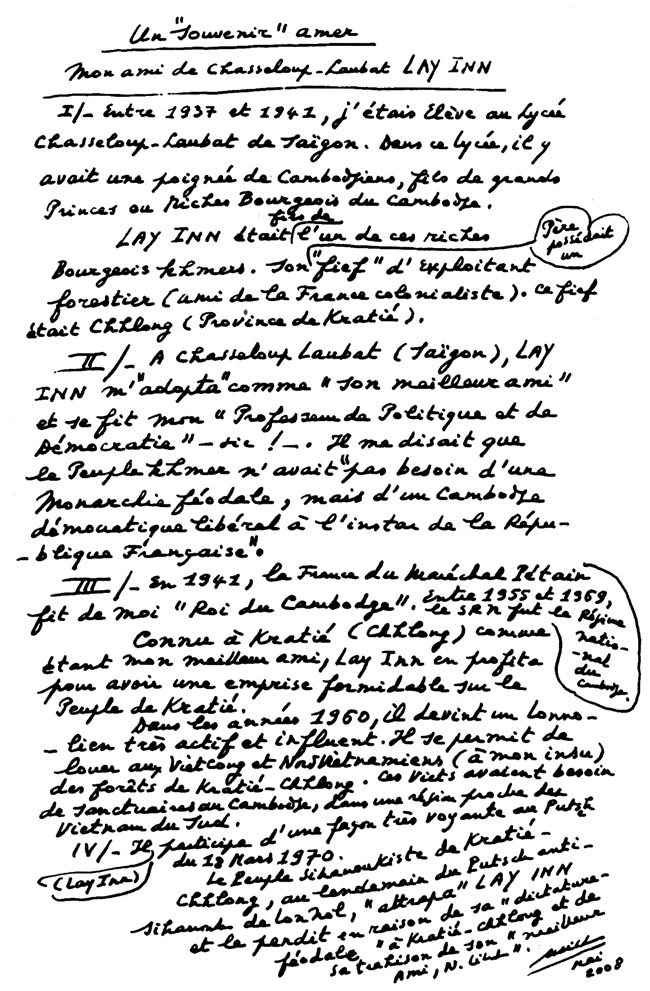 Un "Souvenir" amer
Mon ami de Chasseloup-Laubat LAY INN
I/- Entre 1937 et 1941, j'étais Elève au Lycée
Chasseloup-Laubat de Saïgon. Dans ce lycée, il y
avait une poignée de Cambodgiens, fils de grands
Princes ou Riches Bourgeois du Cambodge.
fils de
LAY INN était l'un de ces riches
Père
possédait
un
Bourgeois khmers. Son "fief" d'Exploitant
forestier (ami de la France colonialiste). Ce fief
était Chhlong (Province de Kratié).
II/- A Chasseloup Laubat (Saïgon), LAY
INN m'"adopta" comme "son meilleur ami"
et se fit mon "Professeur de Politique et de
Démocratie" - sic ! -. Il me disait que
le Peuple khmer n'avait "pas besoin d'une
Monarchie féodale, mais d'un Cambodge
démocratique libéral à l'instar de la Répu-
-blique Française".
III/- En 1941, la France du Maréchal Pétain
fit de moi "Roi du Cambodge". Entre 1955 et 1969,
le SRN fut le Régime
natio-
-nal
du
Cambodge.
Connu à Kratié (Chhlong) comme
étant mon meilleur ami, Lay Inn en profita
pour avoir une emprise formidable sur le
Peuple de Kratié.
Dans les années 1960, il devint un Lonno-
-lien très actif et influent. Il se permit de
louer aux Vietcong et NordVietnamiens (à mon insu)
des forêts de Kratié-Chhlong. Ces Viets avaient besoin
de sanctuaires au Cambodge, dans une région proche du
Vietnam du Sud.
IV/- Il participa d'une façon très voyante au Putsch
(Lay Inn)
du 18 Mars 1970.
Le Peuple sihanoukiste de Kratié-
Chhlong, au lendemain du Putsch anti-
Sihanouk de Lon Nol, "attrapa" LAY INN
et le pendit en raison de sa "dictature-
féodale" à Kratié-Chhlong et de
sa trahison de son "meilleur
Ami, N. Sihk".
Mai
2008